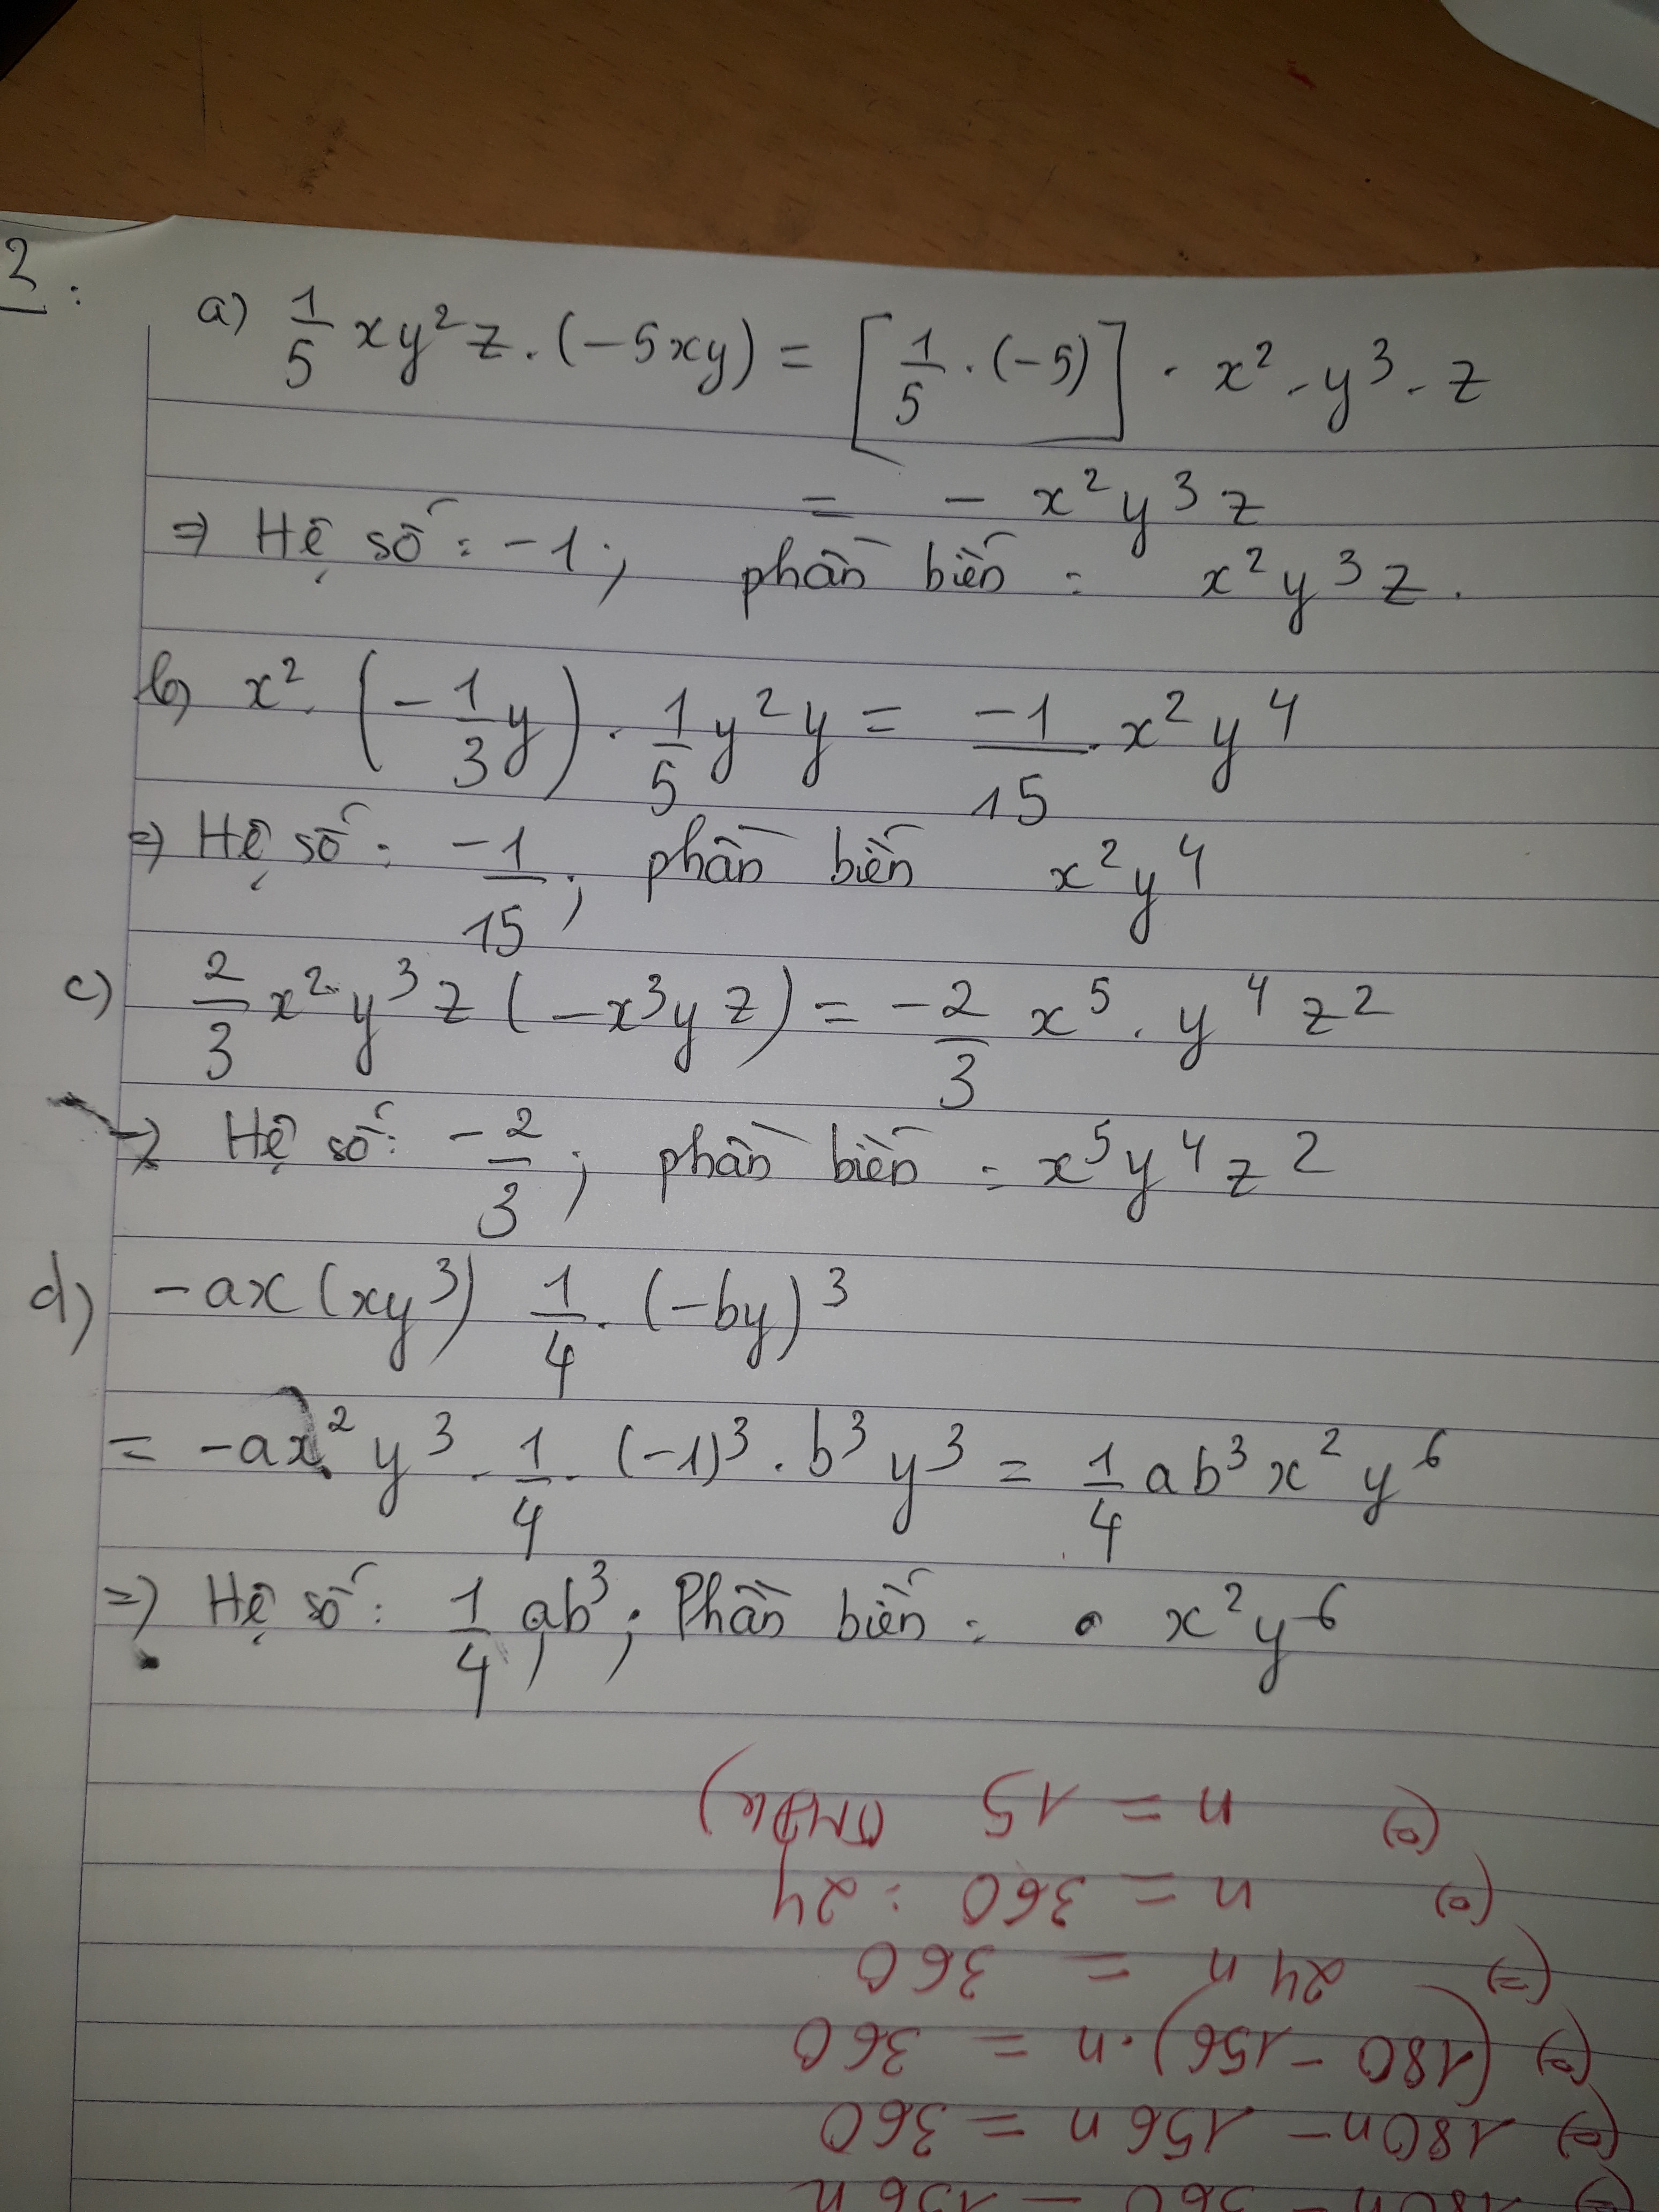 2:
a) 1/5 xy²z . (-5xy) = [1/5 . (-5)] . x² . y³ . z
= - x²y³z
=> Hệ số : -1 ; phần biến : x²y³z .
b) x² . (-1/3 y) . 1/5 y²y = -1/15 . x²y⁴
=> Hệ số : -1/15 ; phần biến x²y⁴
c) 2/3 x²y³z (-x³yz) = -2/3 x⁵ . y⁴z²
=> Hệ số : -2/3 ; phần biến : x⁵y⁴z²
d) -ax(xy³) 1/4 . (-by)³
= -ax²y³ . 1/4 . (-1)³ . b³y³ = 1/4 ab³x²y⁶
=> Hệ số : 1/4 ab³ ; Phần biến : x²y⁶
180n - 360 = 156n
(=) 180n - 156n = 360
(=) (180 - 156) . n = 360
(=) 24n = 360
(=) n = 360 : 24
(=) n = 15 (TMĐK)